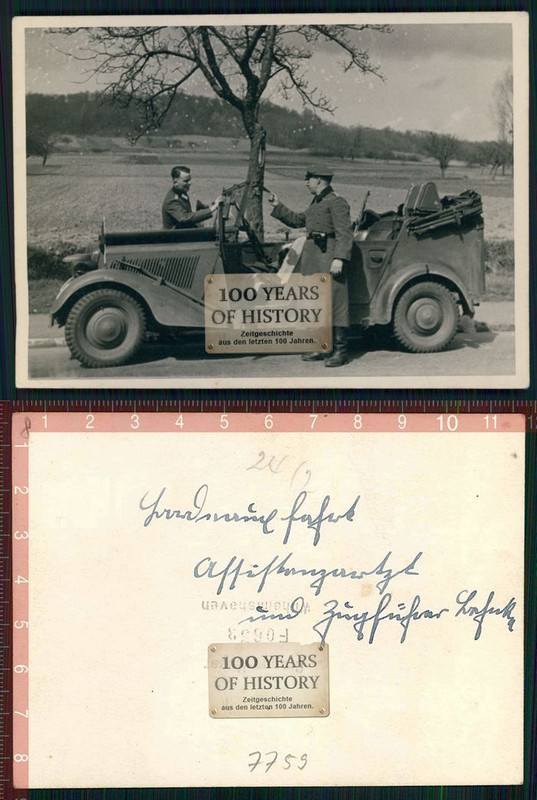 100 YEARS
OF HISTORY
Zeitgeschichte
aus den letzten 100 Jahren.
8
1 2 3 4 5 6 7 8 9 10 11 12
1
2
3
4
5
6
7
8
24
fahrt
Assistenzarzt
und Zugführer Behnke
100 YEARS
OF HISTORY
Zeitgeschichte
aus den letzten 100 Jahren.
7759